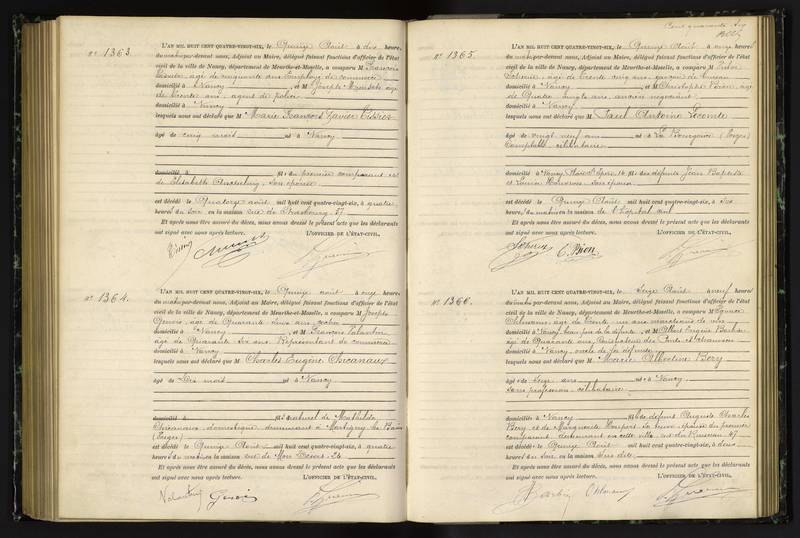 N° 1363.
L'AN MIL HUIT CENT QUATRE-VINGT-SIX, le Quinze Août à dix heures
du matin par-devant nous, Adjoint au Maire, délégué faisant fonctions d'officier de l'état
civil de la ville de Nancy, département de Meurthe-et-Moselle, a comparu M François
âgé de cinquante ans Employé de commerce
domicilié à Nancy et M Joseph
de trente ans, agent de police
domicilié à Nancy
lesquels nous ont déclaré que M Marie François Xavier
âgé de cinq mois né à Nancy
domicilié à fils du premier comparant et
de Elisabeth son épouse
est décédé le Quatorze août mil huit cent quatre-vingt-six, à quatre
heures du soir en la maison rue de Strasbourg 57
Et après nous être assuré du décès, nous avons dressé le présent acte que les déclarants
ont signé avec nous après lecture. L'OFFICIER DE L'ÉTAT-CIVIL,
N° 1364.
L'AN MIL HUIT CENT QUATRE-VINGT-SIX, le Quinze août à onze heures
du matin par-devant nous, Adjoint au Maire, délégué faisant fonctions d'officier de l'état
civil de la ville de Nancy, département de Meurthe-et-Moselle, a comparu M Joseph
âgé de Quarante deux ans, cocher
domicilié à Nancy et M François Valentin
âgé de Quarante six ans Représentant de commerce
domicilié à Nancy
lesquels nous ont déclaré que M Charles Eugène Chicanaux
âgé de Dix mois né à Nancy
domicilié à fils naturel de Mathilde
Chicanaux domestique demeurant à Martigny les Bains
(Vosges)
est décédé le Quinze Août mil huit cent quatre-vingt-six, à quatre
heures du matin en la maison rue de Mon Désert 26
Et après nous être assuré du décès, nous avons dressé le présent acte que les déclarants
ont signé avec nous après lecture. L'OFFICIER DE L'ÉTAT-CIVIL,
Cent quarante
N° 1365.
L'AN MIL HUIT CENT QUATRE-VINGT-SIX, le Quinze Août à onze heures
du matin par-devant nous, Adjoint au Maire, délégué faisant fonctions d'officier de l'état
civil de la ville de Nancy, département de Meurthe-et-Moselle, a comparu M Victor
âgé de trente cinq ans, garçon de bureau
domicilié à Nancy et M Christophe âgé
de Quatre vingts ans, ancien négociant
domicilié à Nancy
lesquels nous ont déclaré que M Paul Antoine Lecomte
âgé de vingt neuf ans né à La Bourgonce (Vosges)
Comptable célibataire
domicilié à Nancy, Place St Epvre 14 fils des défunts Jean Baptiste
et Louise son épouse
est décédé le Quinze Août mil huit cent quatre-vingt-six, à six
heures du matin en la maison de l'Hôpital civil
Et après nous être assuré du décès, nous avons dressé le présent acte que les déclarants
ont signé avec nous après lecture. L'OFFICIER DE L'ÉTAT-CIVIL,
N° 1366.
L'AN MIL HUIT CENT QUATRE-VINGT-SIX, le Seize Août à neuf heures
du matin par-devant nous, Adjoint au Maire, délégué faisant fonctions d'officier de l'état
civil de la ville de Nancy, département de Meurthe-et-Moselle, a comparu M Ignace
Ohlmann, âgé de trente un ans marchand de vins
domicilié à Nancy beau père de la défunte et M Albert Eugène
âgé de Quarante ans, Conducteur des Ponts et chaussées
domicilié à Nancy, oncle de la défunte
lesquels nous ont déclaré que M Marie Albertine Bery
âgée de Seize ans née à Nancy
sans profession célibataire
domiciliée à Nancy fille de défunt Auguste Charles
Bery et de Marguerite sa veuve épouse du premier
comparant demeurant en cette ville rue du Ruisseau 47
est décédée le Quinze Août mil huit cent quatre-vingt-six, à deux
heures du soir en la maison sus dite
Et après nous être assuré du décès, nous avons dressé le présent acte que les déclarants
ont signé avec nous après lecture. L'OFFICIER DE L'ÉTAT-CIVIL,